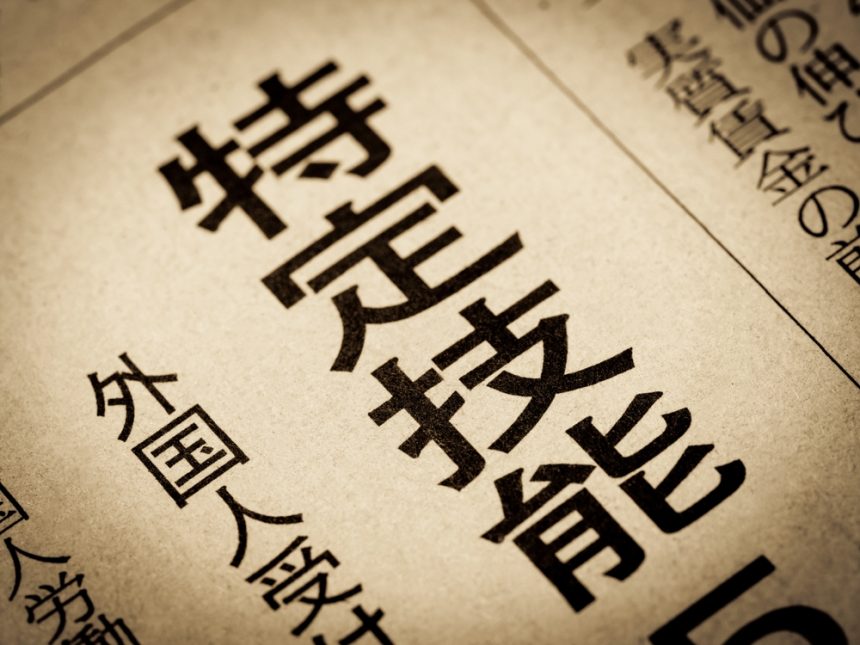 価の伸び
実質賃金の
特定技能5
外国人受け
国人労働